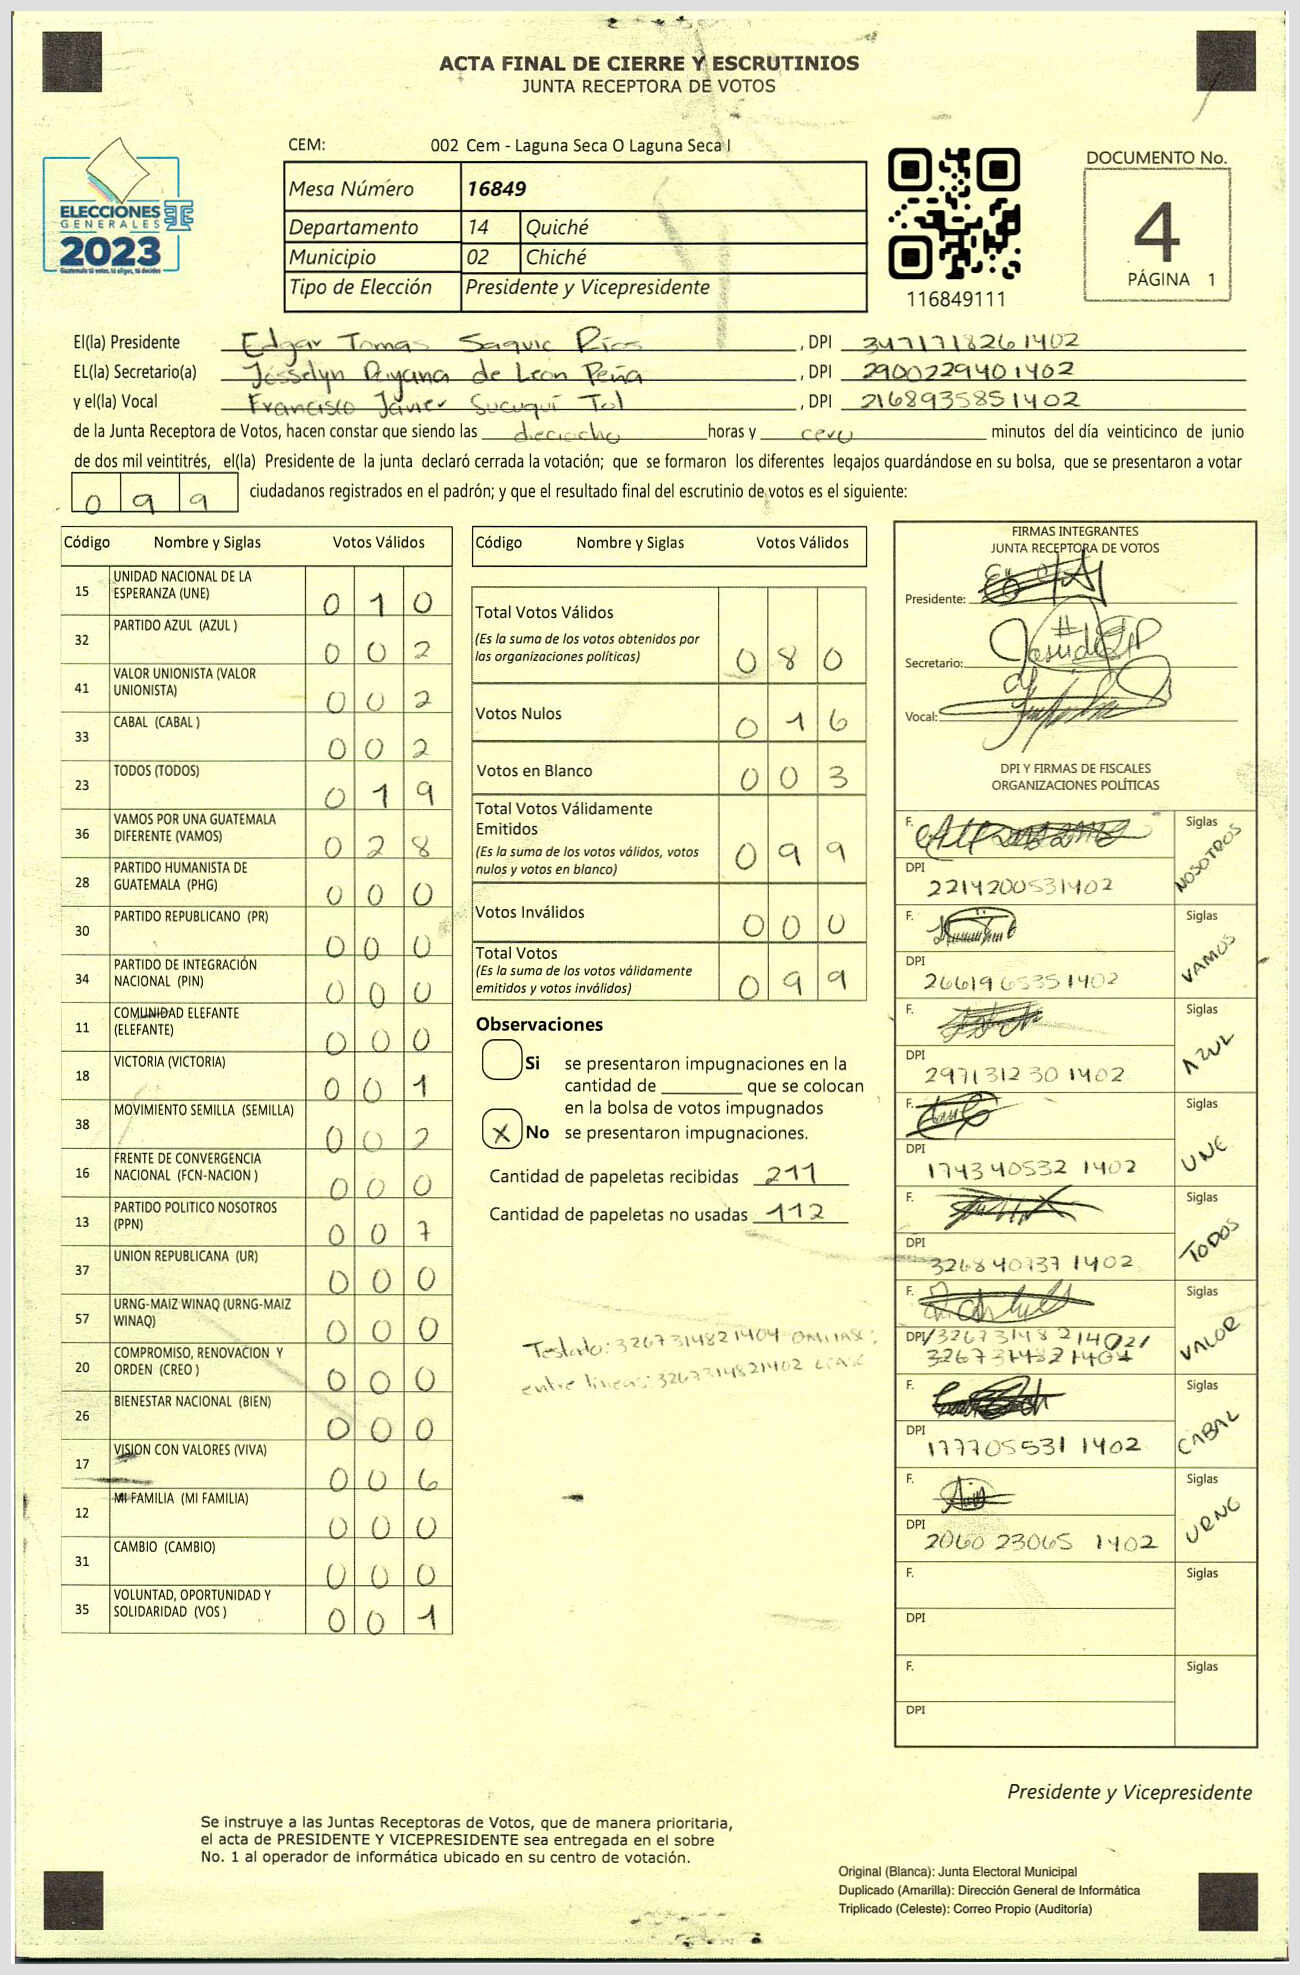 ACTA FINAL DE CIERRE Y ESCRUTINIOS
JUNTA RECEPTORA DE VOTOS
CEM: 002 Cem - Laguna Seca O Laguna Seca I
ELECCIONES
GENERALES
2023
Guatemala tú votas, tú eliges, tú decides
Mesa Número 16849
Departamento 14 Quiché
Municipio 02 Chiché
Tipo de Elección Presidente y Vicepresidente
116849111
DOCUMENTO No.
4
PÁGINA 1
El(la) Presidente Edgar Tomas Saquic Ríos, DPI 3471718261402
EL(la) Secretario(a) Josselyn Dayana de León Peña, DPI 2900229401402
y el(la) Vocal Francisco Javier Sucuquí Tol, DPI 2168935851402
de la Junta Receptora de Votos, hacen constar que siendo las dieciocho horas y cero minutos del día veinticinco de junio
de dos mil veintitrés, el(la) Presidente de la junta declaró cerrada la votación; que se formaron los diferentes legajos guardándose en su bolsa, que se presentaron a votar
099 ciudadanos registrados en el padrón; y que el resultado final del escrutinio de votos es el siguiente:
Código Nombre y Siglas Votos Válidos
15 UNIDAD NACIONAL DE LA
ESPERANZA (UNE) 010
32 PARTIDO AZUL (AZUL ) 002
41 VALOR UNIONISTA (VALOR
UNIONISTA) 002
33 CABAL (CABAL ) 002
23 TODOS (TODOS) 019
36 VAMOS POR UNA GUATEMALA
DIFERENTE (VAMOS) 028
28 PARTIDO HUMANISTA DE
GUATEMALA (PHG) 000
30 PARTIDO REPUBLICANO (PR) 000
34 PARTIDO DE INTEGRACIÓN
NACIONAL (PIN) 000
11 COMUNIDAD ELEFANTE
(ELEFANTE) 000
18 VICTORIA (VICTORIA) 001
38 MOVIMIENTO SEMILLA (SEMILLA) 002
16 FRENTE DE CONVERGENCIA
NACIONAL (FCN-NACION ) 000
13 PARTIDO POLITICO NOSOTROS
(PPN) 007
37 UNION REPUBLICANA (UR) 000
57 URNG-MAIZ WINAQ (URNG-MAIZ
WINAQ) 000
20 COMPROMISO, RENOVACION Y
ORDEN (CREO ) 000
26 BIENESTAR NACIONAL (BIEN) 000
17 VISION CON VALORES (VIVA) 006
12 MI FAMILIA (MI FAMILIA) 000
31 CAMBIO (CAMBIO) 000
35 VOLUNTAD, OPORTUNIDAD Y
SOLIDARIDAD (VOS ) 001
Código Nombre y Siglas Votos Válidos
Total Votos Válidos
(Es la suma de los votos obtenidos por
las organizaciones políticas) 080
Votos Nulos 016
Votos en Blanco 003
Total Votos Válidamente
Emitidos
(Es la suma de los votos válidos, votos
nulos y votos en blanco) 099
Votos Inválidos 000
Total Votos
(Es la suma de los votos válidamente
emitidos y votos inválidos) 099
Observaciones
Si se presentaron impugnaciones en la
cantidad de ________ que se colocan
en la bolsa de votos impugnados
X No se presentaron impugnaciones.
Cantidad de papeletas recibidas 211
Cantidad de papeletas no usadas 112
Testado: 3267314821404 OMITASE;
entre líneas: 3267314821402 LEASE
FIRMAS INTEGRANTES
JUNTA RECEPTORA DE VOTOS
Presidente:
Secretario:
Vocal:
DPI Y FIRMAS DE FISCALES
ORGANIZACIONES POLÍTICAS
F. Siglas
DPI NOSOTROS
2214200531402
F. Siglas
DPI VAMOS
2661965351402
F. Siglas
DPI AZUL
2971312301402
F. Siglas
DPI UNE
1743405321402
F. Siglas
DPI TODOS
3268407371402
F. Siglas
DPI /3267314821402/ VALOR
3267314821404
F. Siglas
DPI CABAL
1777055311402
F. Siglas
DPI URNG
2060230651402
F. Siglas
DPI
F. Siglas
DPI
Presidente y Vicepresidente
Se instruye a las Juntas Receptoras de Votos, que de manera prioritaria,
el acta de PRESIDENTE Y VICEPRESIDENTE sea entregada en el sobre
No. 1 al operador de informática ubicado en su centro de votación.
Original (Blanca): Junta Electoral Municipal
Duplicado (Amarilla): Dirección General de Informática
Triplicado (Celeste): Correo Propio (Auditoría)